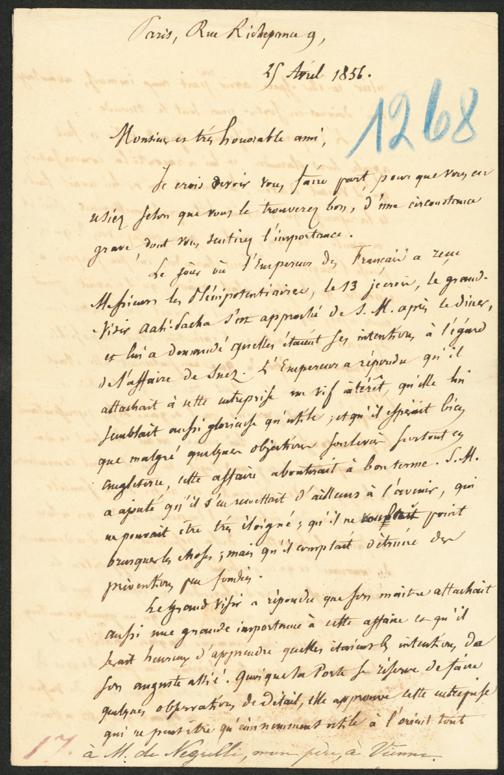 Paris, Rue Richepance 9,
25 Avril 1856.
1268
Monsieur et très honorable ami,
Je crois devoir vous faire part pour que vous en
usiez selon que vous le trouverez bon, d'une circonstance
grave dont vous sentirez l'importance.
Le jour où l'Empereur des Français a reçu
Messieurs les Plénipotentiaires, le 13, le grand-
Visir Aali-Pacha s'est approché de S. M. après le dîner,
et lui a demandé quelles étaient ses intentions à l'égard
de l'affaire de Suez. L'Empereur a répondu qu'il
attachait à cette entreprise un vif intérêt, qu'elle lui
semblait aussi glorieuse qu'utile; et qu'il espérait bien
que malgré quelques objections soulevées surtout en
Angleterre, cette affaire aboutirait à bon terme. S. M.
a ajouté qu'il s'en remettait d'ailleurs à l'avenir, qui
ne pouvait être très éloigné; qu'il ne point
brusquer les choses; mais qu'il comptait détruire des
préventions peu fondées.
Le grand Visir a répondu que son maître attachait
aussi une grande importance à cette affaire et qu'il
serait heureux d'apprendre quelles étaient les intentions de
son auguste allié. Quoique la Porte se réserve de faire
quelques observations de détail, elle approuve cette entreprise
qui ne peut être qu'éminemment utile à l'orient tout
17.
à M. de Negrelli, mon père, à Vienne.